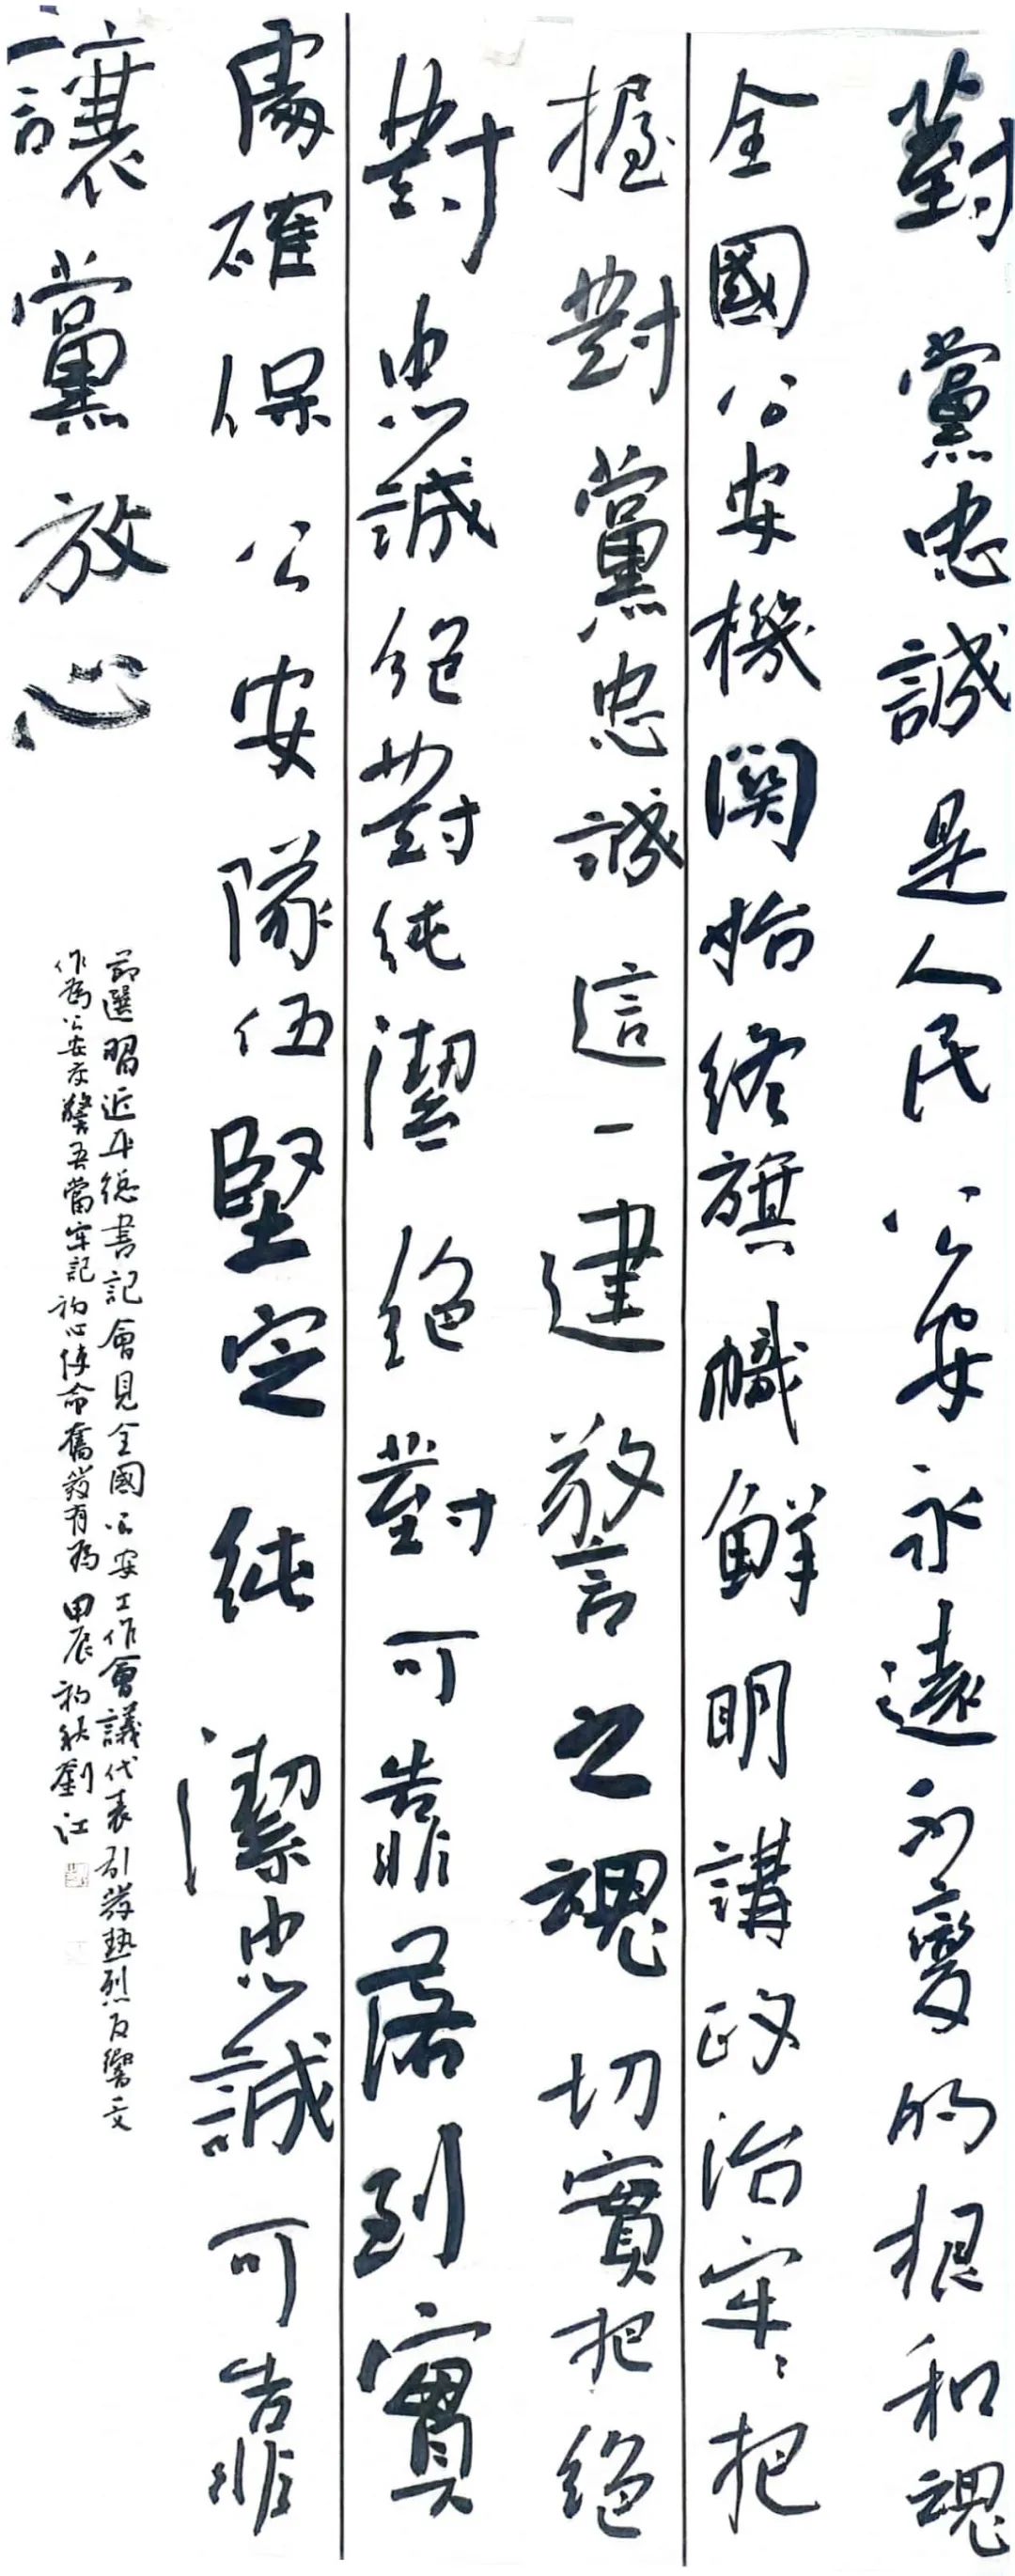 對黨忠誠是人民公安永遠不變的根和魂
全國公安機關始終旗幟鮮明講政治牢牢把
握對黨忠誠這一建警之魂切實把絕
對忠誠絕對純潔絕對可靠落到實
處確保公安隊伍堅定純潔忠誠可靠
讓黨放心
節選習近平總書記會見全國公安工作會議代表引發熱烈反響一文
作為公安交警吾當牢記初心使命奮發有為甲辰初秋劉江